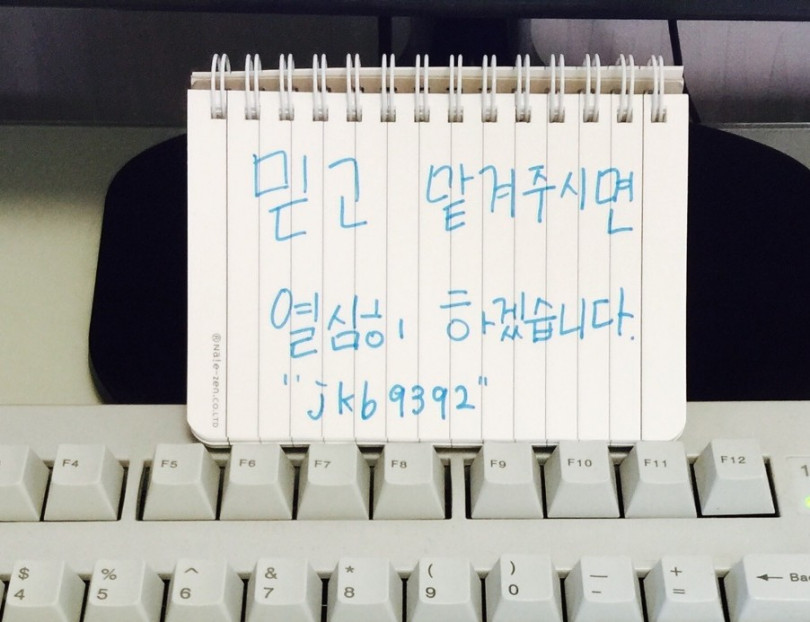 믿고 맡겨주시면
열심히 하겠습니다.
"jkb9392"
F4 F5 F6 F7 F8 F9 F10 F11 F12
$ % ^ & * ( ) — +
4 5 6 7 8 9 0 - =
← Bac